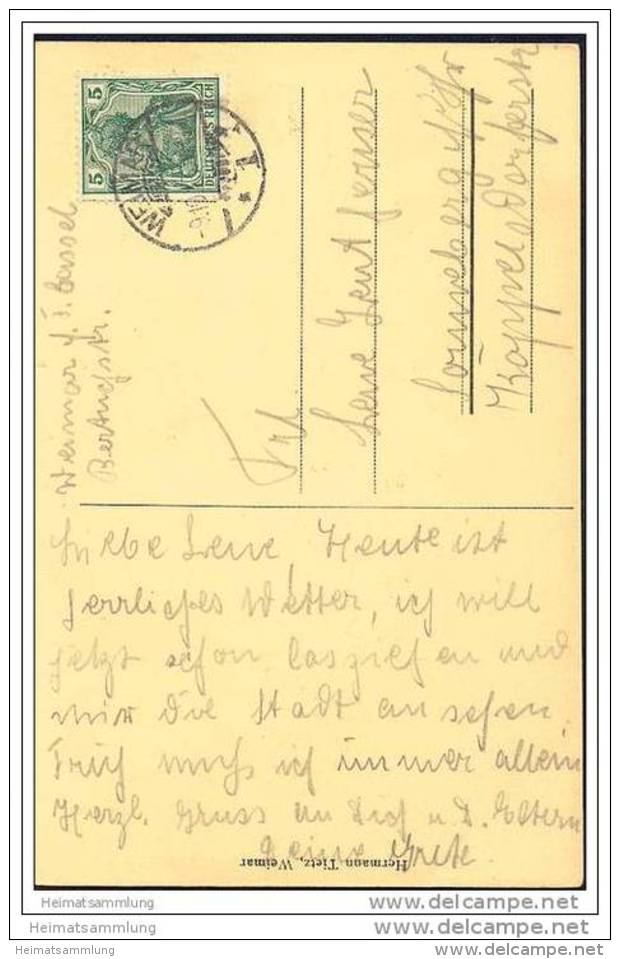 5 5
DEUTSCHES REICH
WEIMAR
Weimar p. T. Cassel
Bertuchstr.
Frl.
Lene
Sonneberg
Köppelsdorferstr.
Liebe Lene, Heute ist
herrliches Wetter, ich will
jetzt schon losziehen und
mir die Stadt ansehen.
Früh muss ich immer allein
Herzl. Gruss an Dich u. D. Eltern
Deine Grete.
Hermann Tietz, Weimar
Heimatsammlung
Heimatsammlung
Heimatsammlung
www.delcampe.net
www.delcampe.net